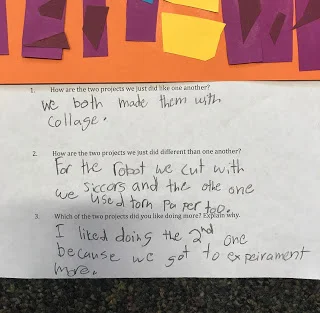 1. How are the two projects we just did like one another?
we both made them with
collage.
2. How are the two projects we just did different than one another?
For the robot we cut with
siccors and the othe one
we used torn paper too.
3. Which of the two projects did you like doing more? Explain why.
I liked doing the 2nd one
because we got to expeirament
more.